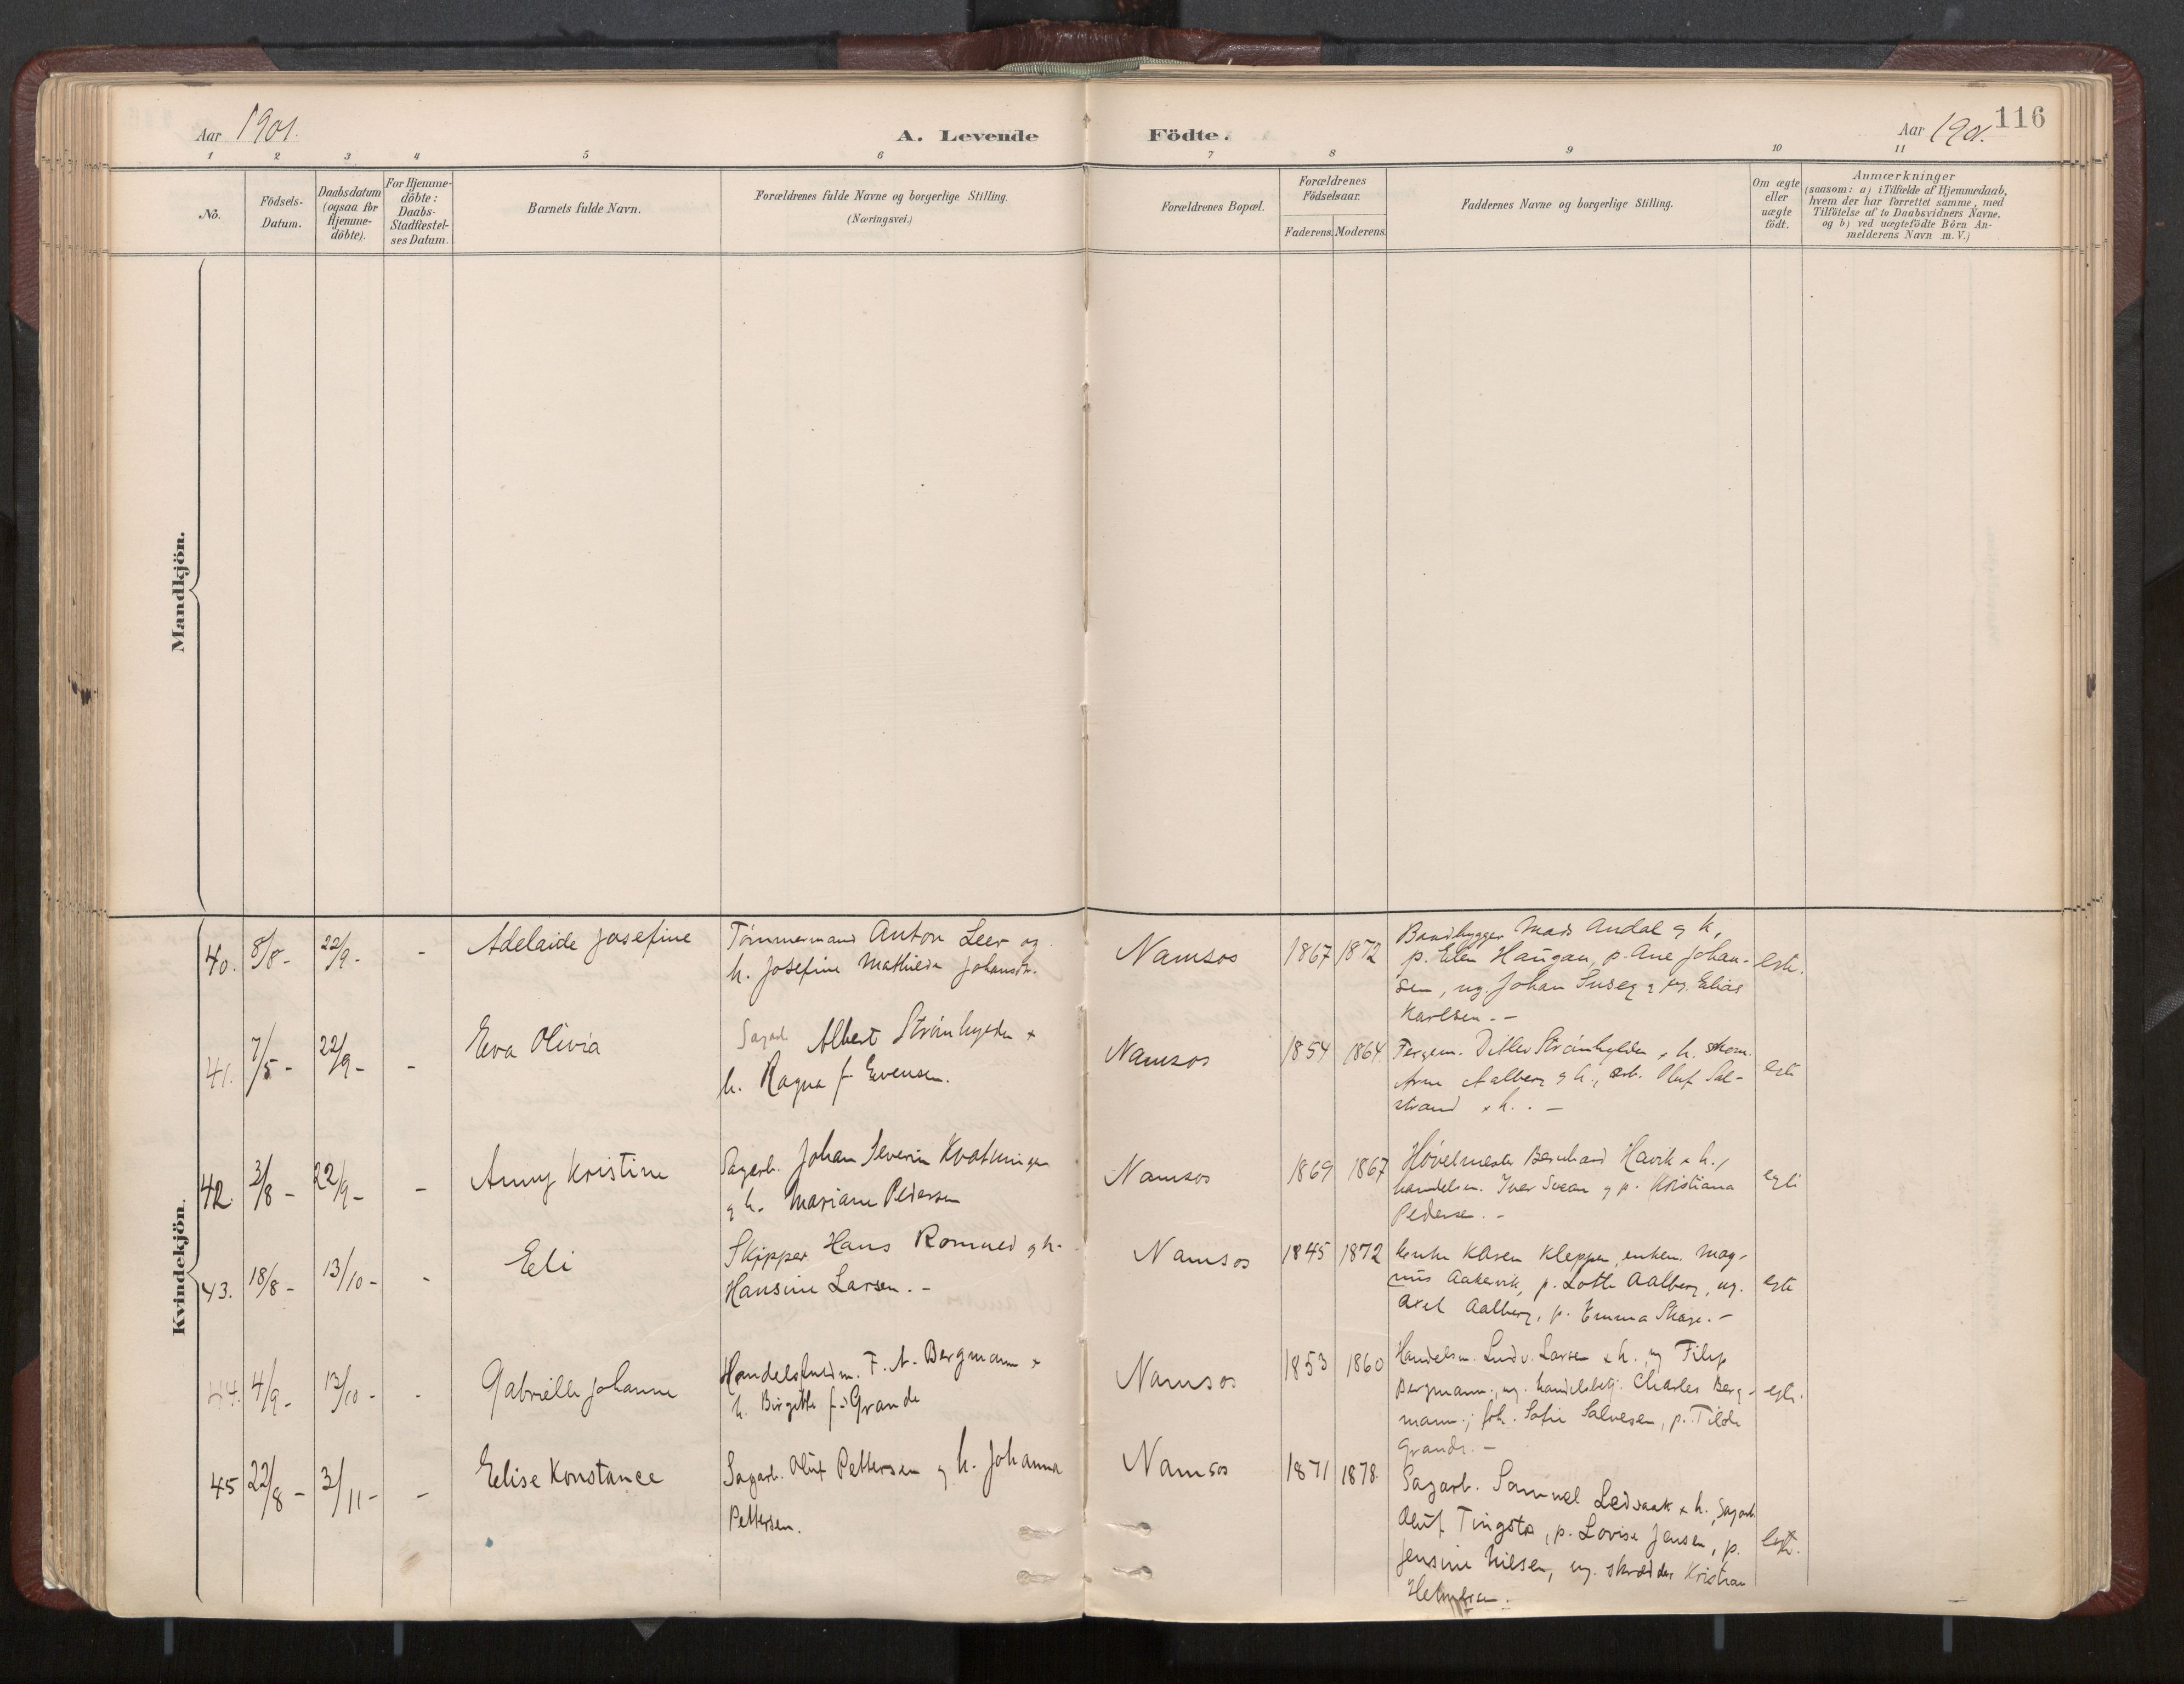 Aar 1901.
A. Levende Födte.
Aar 1901.
116
1 2 3 4 5 6 7 8 9 10 11
No.
Födsels-
Datum.
Daabsdatum
(ogsaa for
Hjemme-
döbte).
For Hjemme-
döbte:
Daabs-
Stadfestel-
ses Datum.
Barnets fulde Navn.
Forældrenes fulde Navne og borgerlige Stilling.
(Næringsvei.)
Forældrenes Bopæl.
Forældrenes
Födselsaar.
Faderens. Moderens.
Faddernes Navne og borgerlige Stilling.
Om ægte
eller
uægte
födt.
Anmærkninger
(saasom: a) i Tilfælde af Hjemmedaab,
hvem der har forrettet samme, med
Tilföielse af to Daabsvidners Navne.
og b) ved uægtefödte Börn An-
melderens Navn m. V.)
Mandkjön.
Kvindekjön.
40. 8/8 - 22/9 - -
Adelaide Josefine
Tömmermand Anton Leer og
h. Josefine Mathilde
Namsos
1867 1872
Mads Andal & h,
p. Elen Haugan, p. Ane Johan-
sen, ug. Johan & ug. Elias
Karlsen. -
41. 7/5 - 22/9 - -
Eva Olivia
Sagarb Albert Strömhylden &
h. Ragna f. Evensen.
Namsos
1854 1864.
Ditlev Strömhylden & h.
Arne Aalberg & h., arb. Oluf Sal-
strand & h. . -
42. 3/8 - 22/9 - -
Anny Kristine
Sagarb. Johan Severin Kvatningen
& h. Mariane Pedersen
Namsos
1869 1867
Hövelmester Bernhard Havik & h.,
handelsm. Iver Svean & p. Kristiana
Pedersen. -
43. 18/8 - 13/10 - -
Eli
Skipper Hans Romued & h.
Hansine Larsen. -
Namsos
1845 1872
Enke Karen Kleppen, enkem. Mag-
nus Aakervik, p. Lotte Aalberg, ug.
Axel Aalberg, p. Emma Skage. -
egte
44. 4/9 - 13/10 - -
Gabrielle Johanne
Handelsm. F. A. Bergmann &
h. Birgitte f. Grande
Namsos
1853 1860
Handelsm. Ludv. Larsen & h., ug Filip
Bergmann., ug. handelsbetj. Charles Berg-
mann., frk. Sofie Salvesen, p. Tilda
Grande. -
45 22/8 - 3/11 - -
Elise Konstance
Sagarb. Oluf Pettersen & h. Johanna
Pettersen.
Namsos
1871 1878.
Sagarb. Samuel Ledsaak & h., Sagarb.
Oluf Tingstad, p. Lovise Jensen, p.
Jensine Nilsen, ug. skrædder Kristian